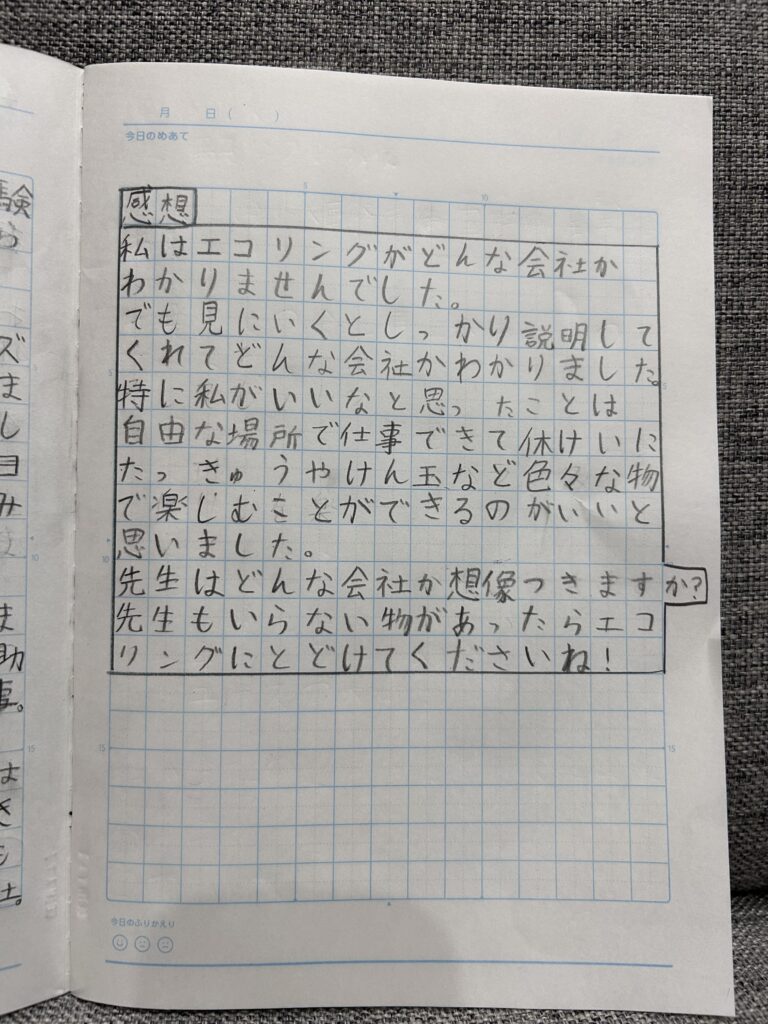 月 日 ( )
今日のめあて
感想
私はエコリングがどんな会社か
わかりませんでした。
でも見にいくとしっかり説明して
くれてどんな会社かわかりました。
特に私がいいなと思ったことは
自由な場所で仕事できて休けいに
たっきゅうやけん玉など色々な物
で楽しむことができるのがいいと
思いました。
先生はどんな会社か想像つきますか?
先生もいらない物があったらエコ
リングにとどけてくださいね!
今日のふりかえり